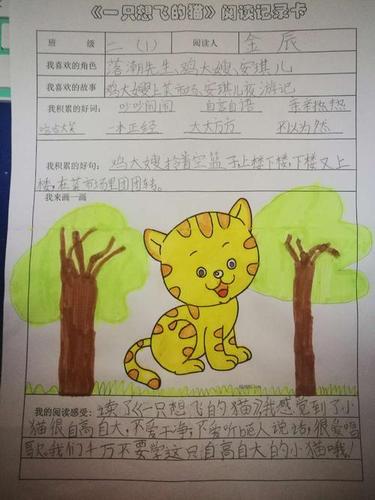 《一只想飞的猫》阅读记录卡
班 级 二（1） 阅读人 金辰
我喜欢的角色 落潮先生、鸡大嫂、安琪儿
我喜欢的故事 鸡大嫂上菜市场、安琪儿夜游记
我积累的好词： 吵吵闹闹 自言自语 亲亲热热
哈哈大笑 一本正经 大大方方 不以为然
我积累的好句： 鸡大嫂拎着空篮子上楼下楼，下楼又上
楼，在菜市场里团团转。
我来画一画
我的阅读感受：读了《一只想飞的猫》我感觉到了小
猫很自高自大，不爱干净，不爱听别人说话，很爱唱
歌，我们千万不要学这只自高自大的小猫哦！